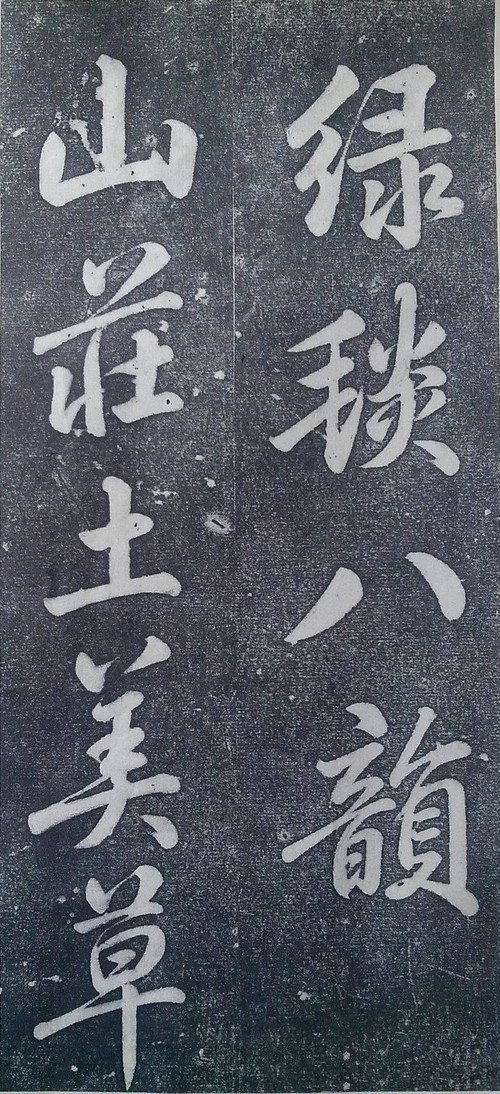 绿毯八韻
山莊土美草